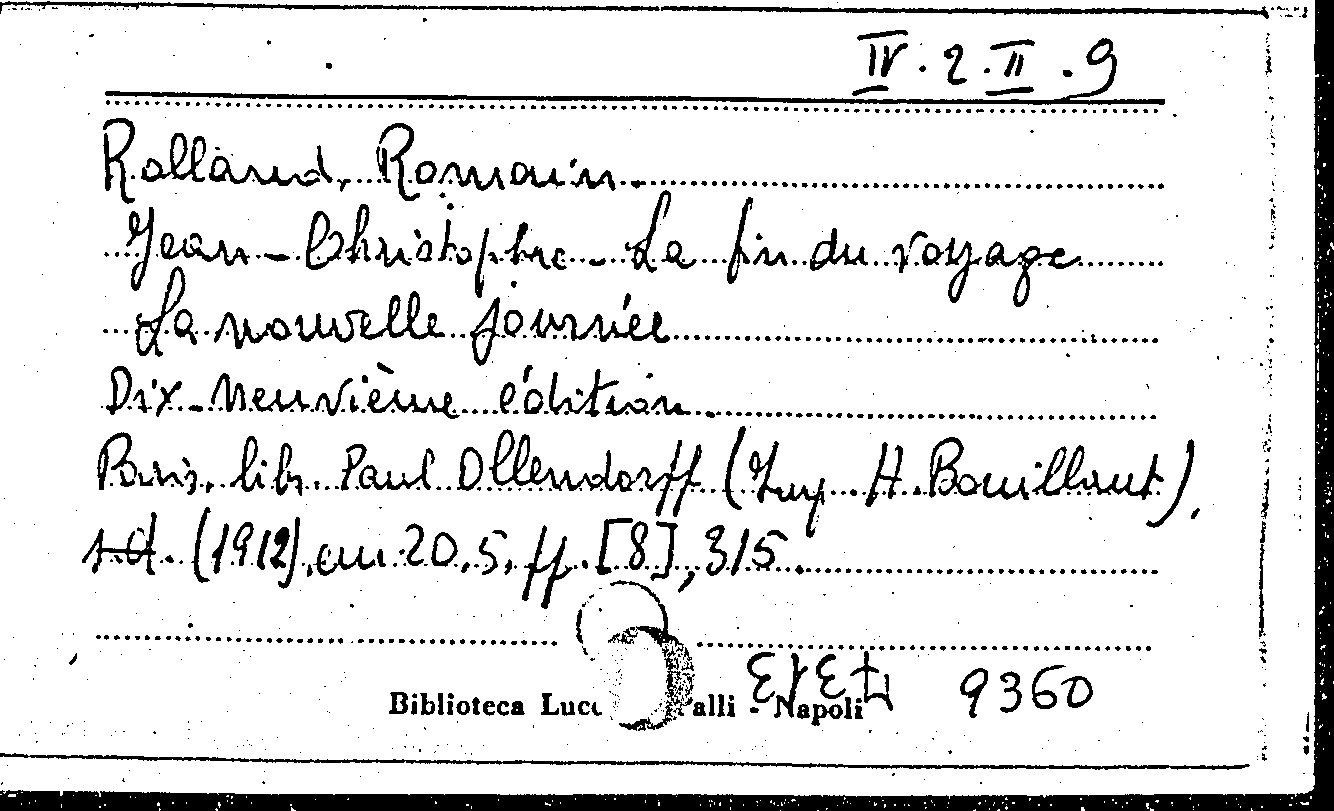 IV.2.II.9
Rolland, Romain.
Jean-Christophe - La fin du voyage
La nouvelle journée
Dix-Neuvième édition.
Paris, libr. Paul Ollendorff (Imp. H. Bouillant),
s.d. (1912), cm. 20,5, ff. [8], 315.
9360
Biblioteca Luc alli - Napoli